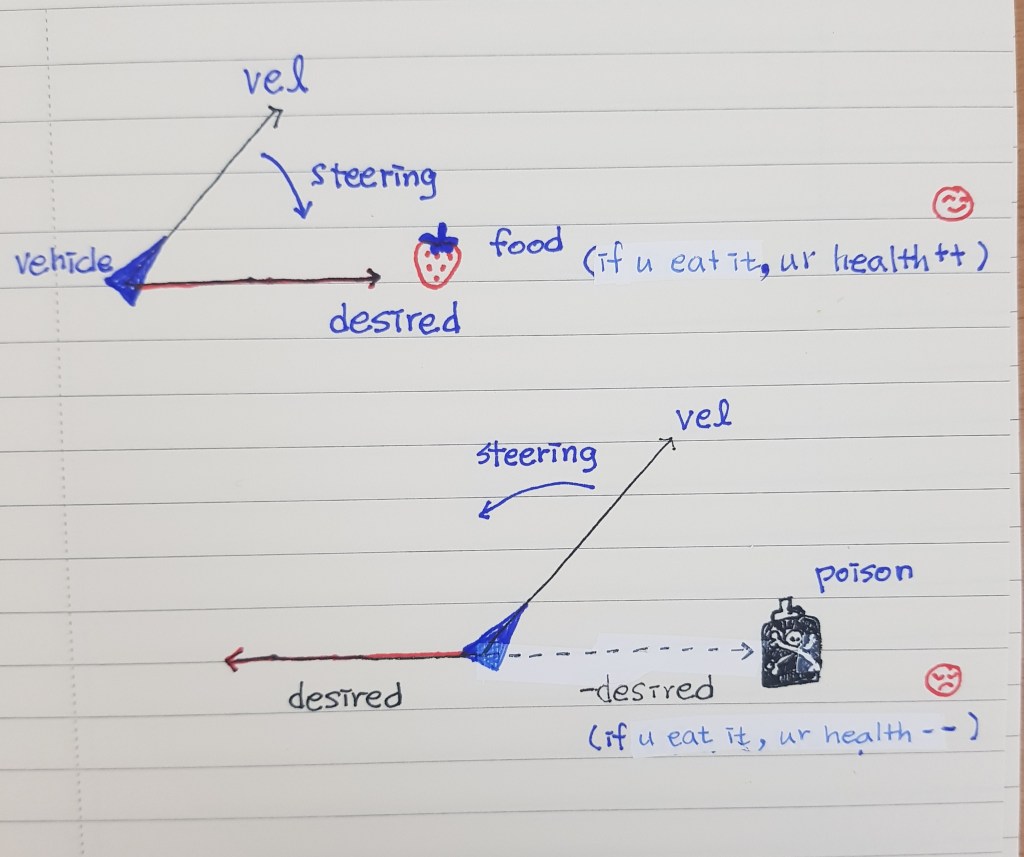 vel
steering
vehicle
food (if u eat it, ur health++)
desired
vel
steering
poison
desired
-desired
(if u eat it, ur health--)